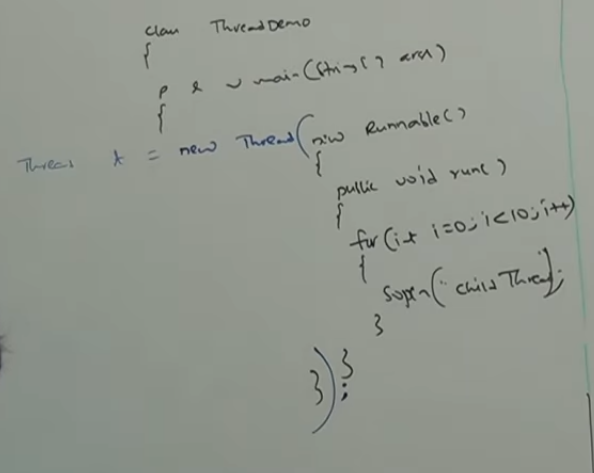 class ThreadDemo
{
p s v main(String[] args)
{
Thread t = new Thread(new Runnable()
{
public void run()
{
for(int i=0; i<10; i++)
{
Sopln("child Thread");
}
}
});